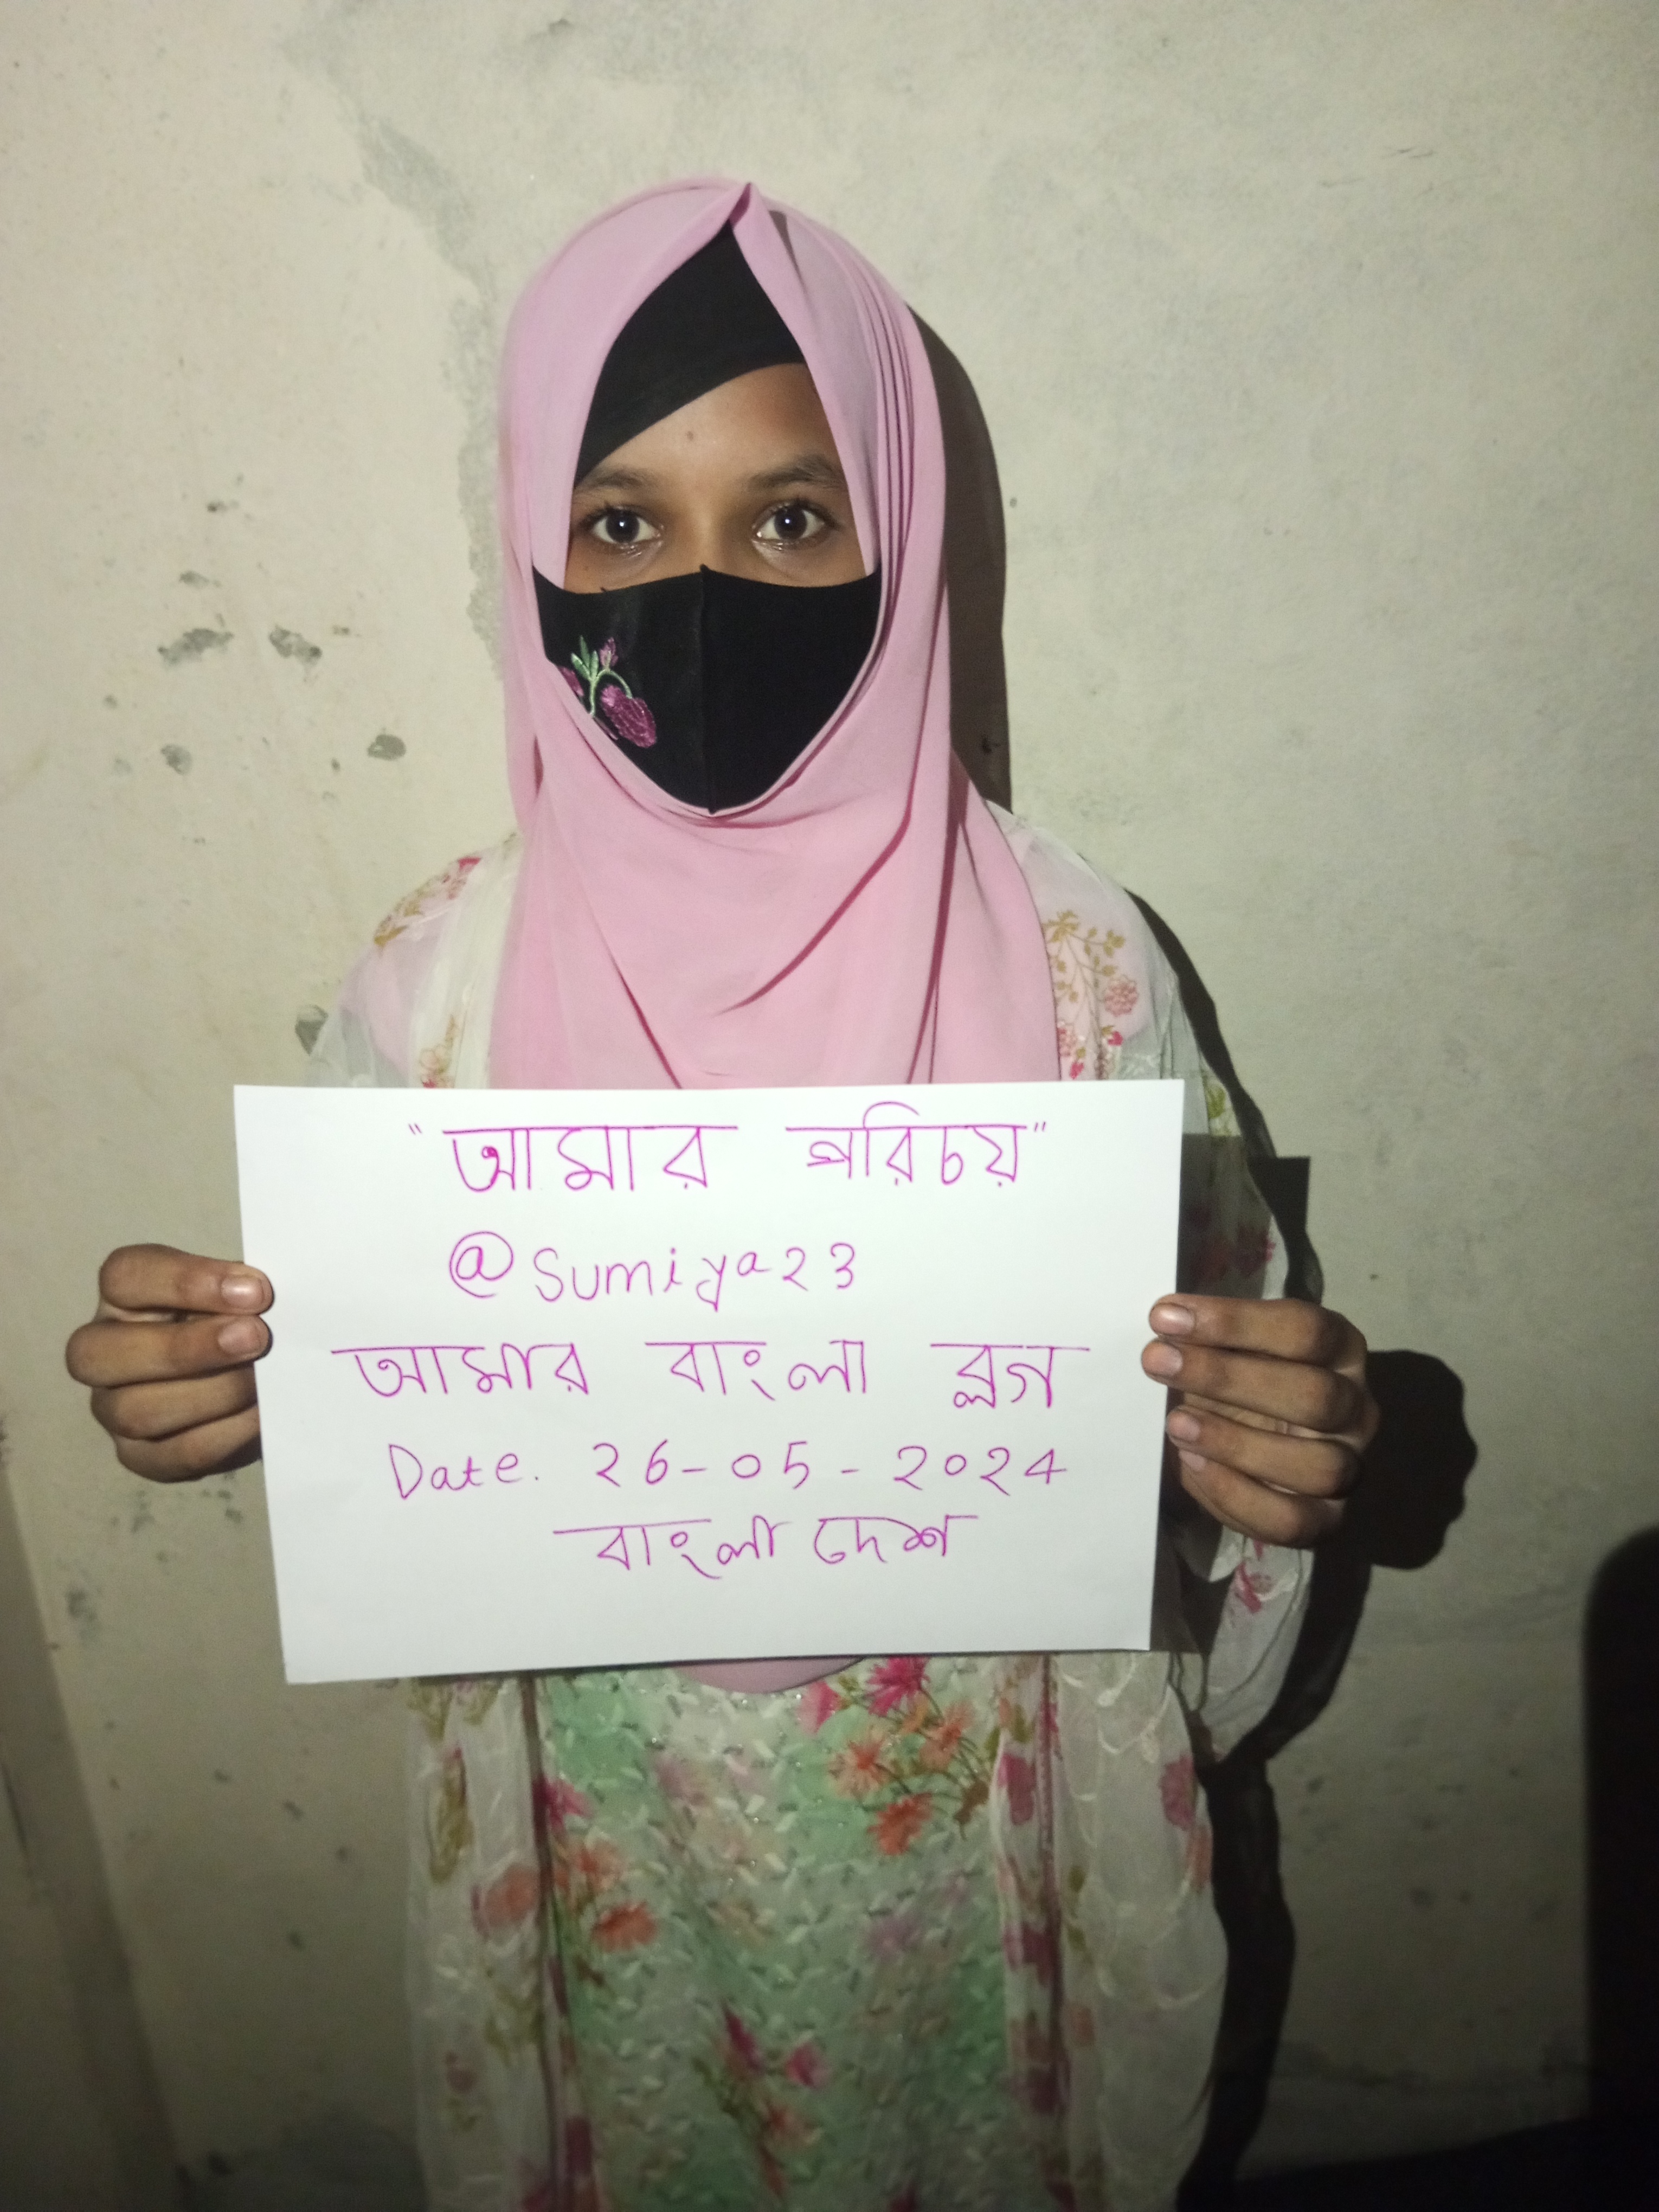 "আমার পরিচয়"
@sumiya23
আমার বাংলা ব্লগ
Date. 26-05-2024
বাংলাদেশ